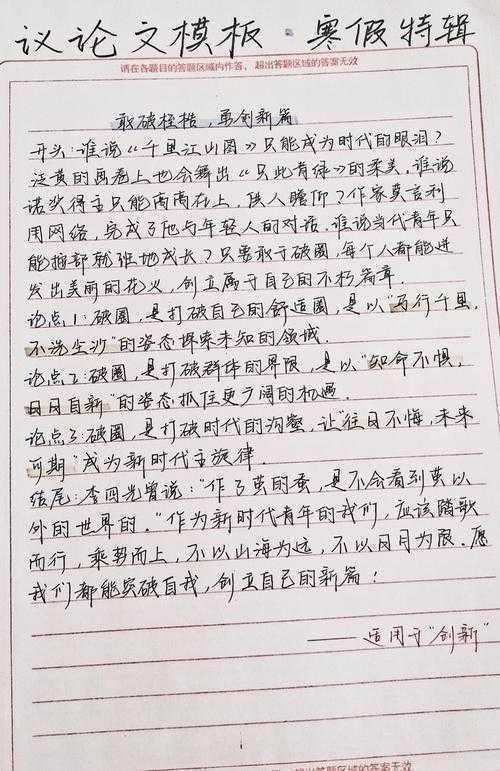 议论文模板·寒假特辑
请在各题目的答题区域内作答，超出答题区域的答案无效
敢破桎梏，勇创新篇
开头：谁说《千里江山图》只能成为时代的眼泪？
泛黄的画卷上也会舞出《只此青绿》的柔美，谁说
诺奖得主只能高高在上，供人瞻仰？作家莫言利
用网络，完成了他与年轻人的对话，谁说当代青年只
能按部就班地成长？只要敢于破圈，每个人都能迸
发出美丽的花火，创立属于自己的不朽篇章.
论点1：破圈，是打破自己的舒适圈，是以"万行千里，
不洗尘沙"的姿态探索未知的领域.
论点2：破圈，是打破群体的界限，是以"知命不惧，
日日自新"的姿态抓住更广阔的机遇.
论点3：破圈，是打破时代的沟壑，让"往日不悔，未来
可期"成为新时代主旋律.
结尾：李四光曾说："作了茧的蚕，是不会看到茧以
外的世界的."作为新时代青年的我们，应该踏歌
而行，乘势而上，不以山海为远，不以日月为限.愿
我们都能突破自我，创立自己的新篇！
——适用于"创新"
超出答题区域的答案无效